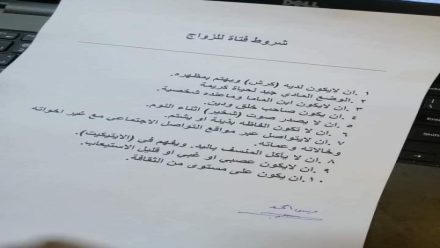 DELL
شروط فتاة للزواج
١.ان لايكون لديه (كرش) ويهتم بمظهره.
٢.الوضع المادي جيد لحياة كريمة
٣.ان لايكون ابن الماما وماعنده شخصية.
٤.ان يكون صاحب خلق ودين.
٥.ان لا يصدر صوت (شخير) اثناء النوم.
٦.ان لا تكون الفاظه بذيئة او يشتم.
٧.ان لايتواصل عبر مواقع التواصل الاجتماعي مع غير اخواته
وخالاته وعماته.
٨.ان لا يأكل المنسف باليد. ويفهم في (الاتيكيت).
٩.ان لايكون عصبي او غبي او قليل الاستيعاب.
١٠.ان يكون على مستوى من الثقافة.